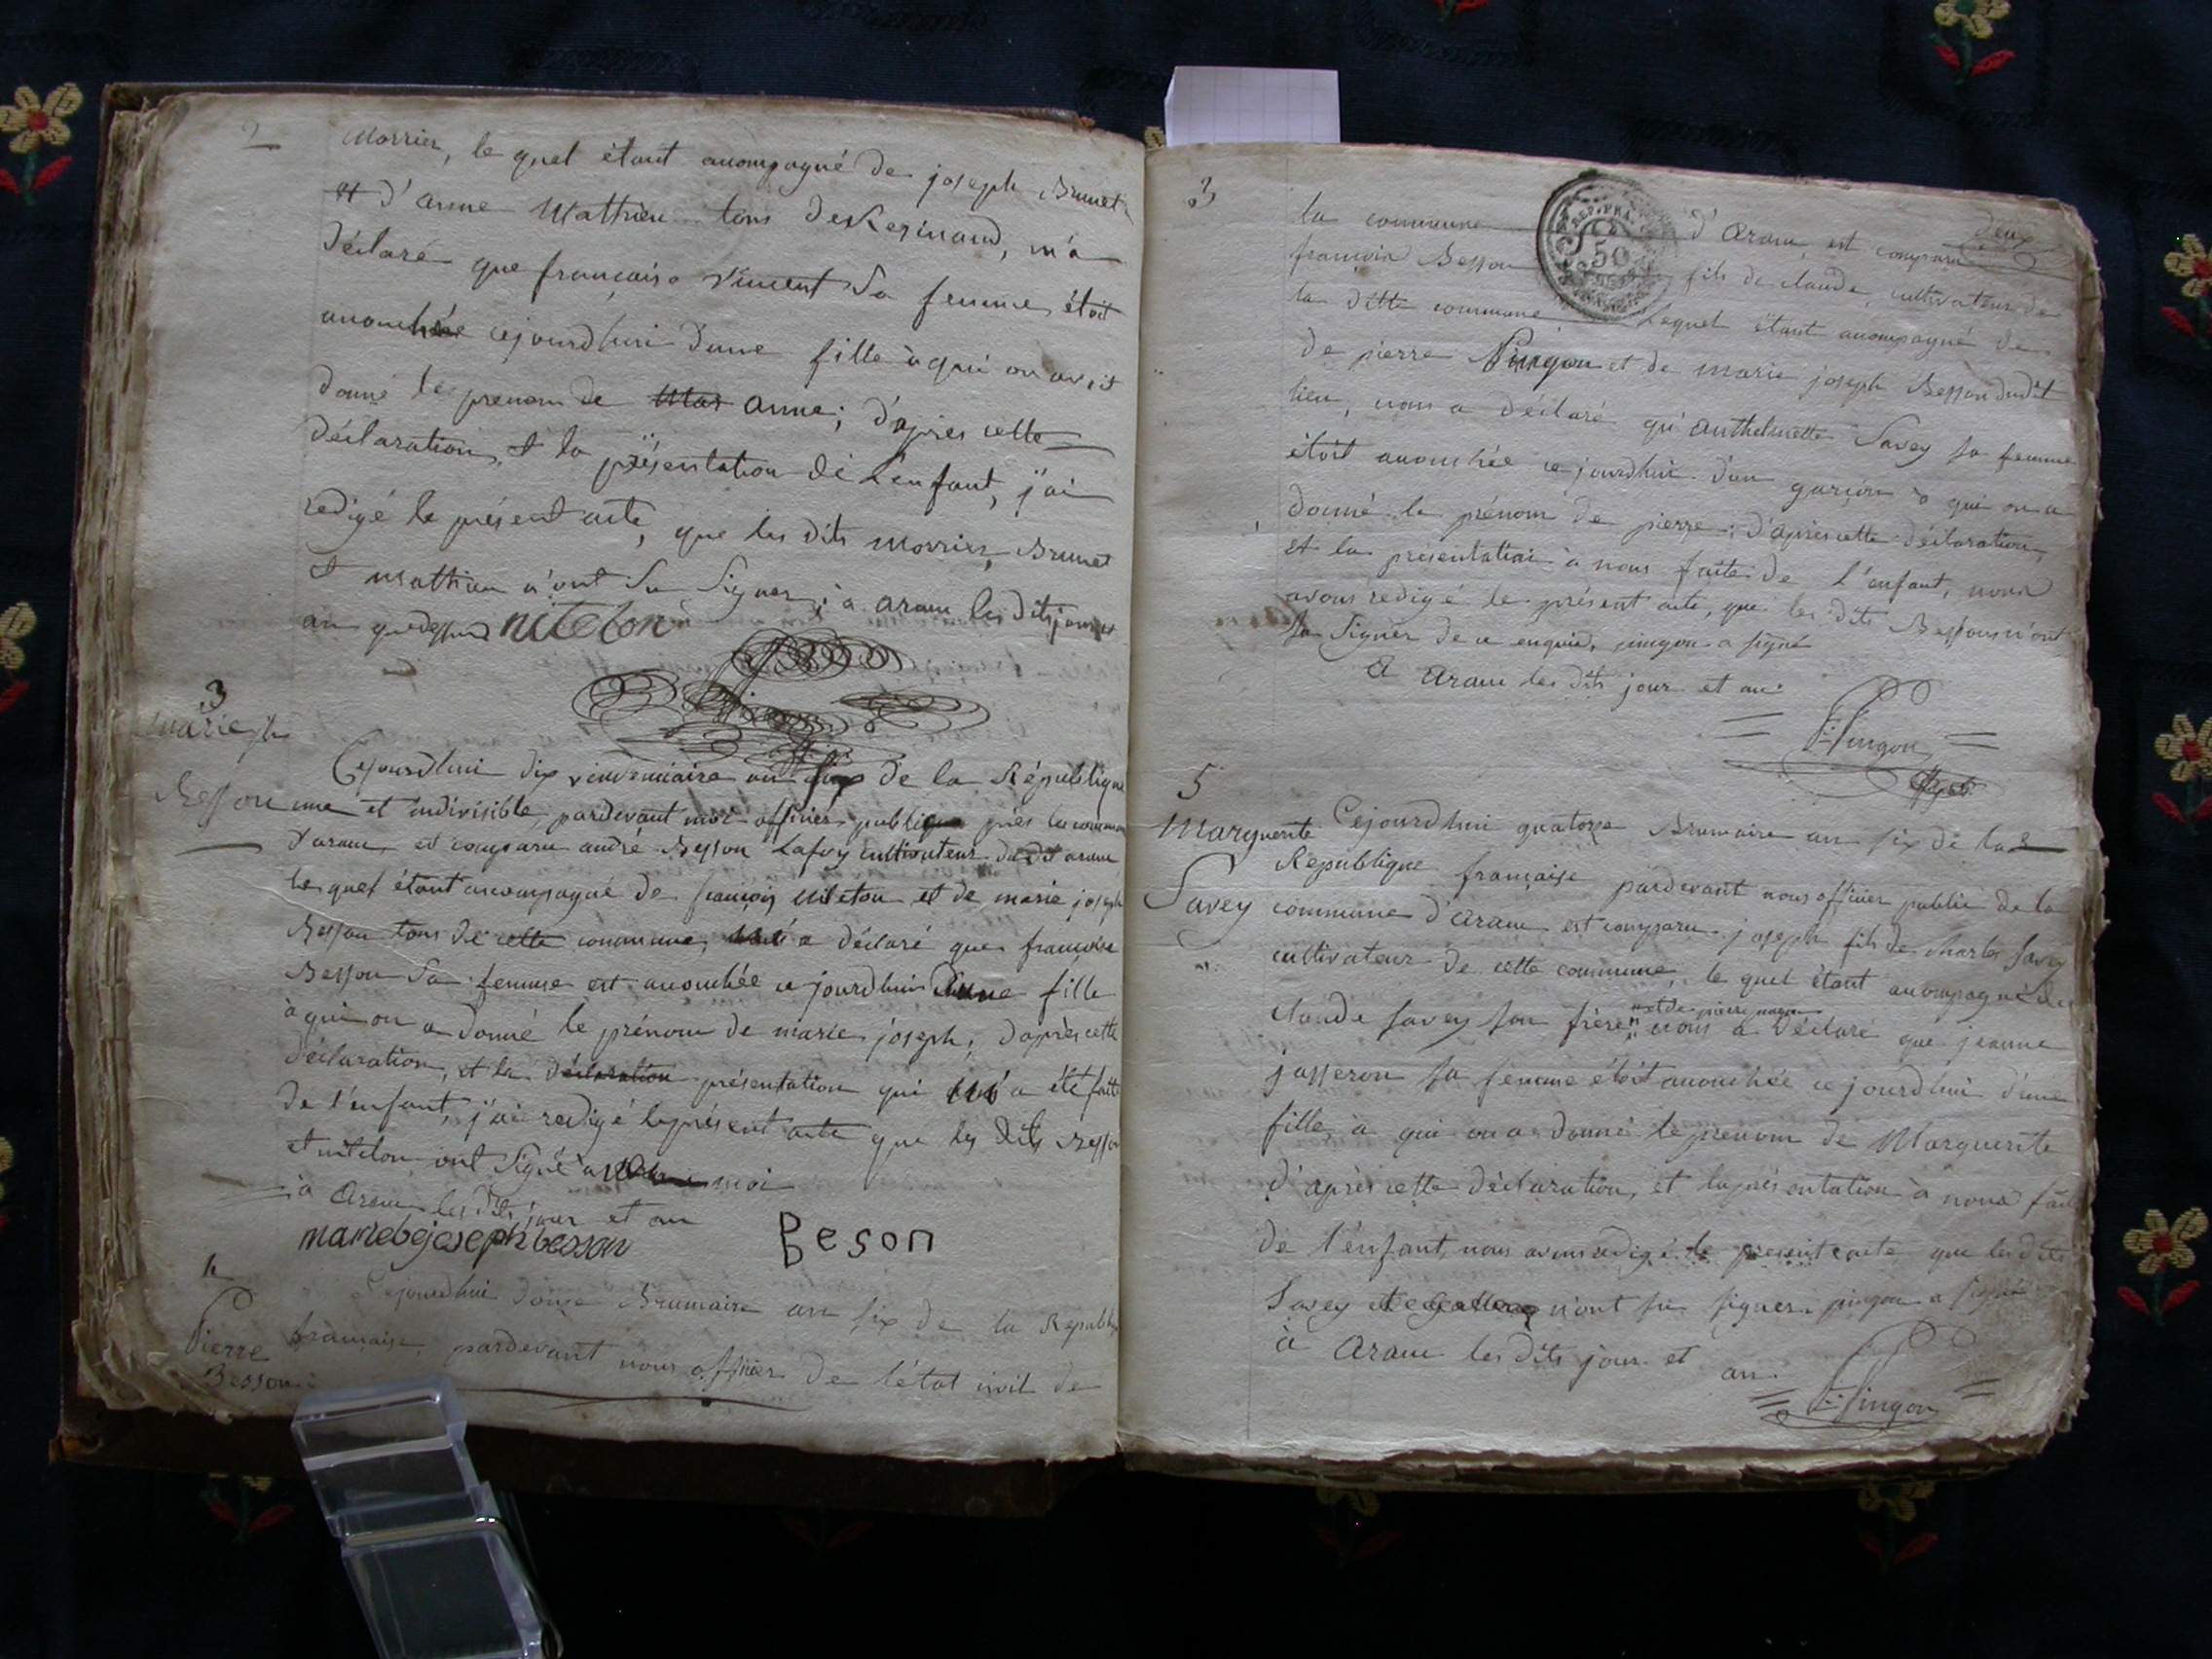 2
Morrier, le quel étant acompagné de joseph Brunet
et d'anne Mathieu tous de Reginand, m'a
déclaré que françoise vincent Sa femme étoit
acouchée cejourdhui dune fille à qui on avoit
donné le prenom de Mar anne; d'après cette
déclaration, et la présentation de L'enfant, j'ai
redigé le présent acte, que les dits morrier, Brunet
et mathieu n'ont Su Signer; à aram les dits jour et
an que dessus niteton
3
marie jh
Besson
Cejourdhui dix vendemiaire an six de la République
une et indivisible, pardevant moi officier publique près la commune
d'aram, est comparu andré Besson Lafoy cultivateur dudit aram
lequel étant acompagné de françois niteton et de marie joseph
Besson tous de cette commune, m'a déclaré que françoise
Besson Sa femme est acouchée ce jourdhui dune fille
à qui on a donné le prénom de marie joseph; daprès cette
déclaration, et la déclaration présentation qui m'a été faite
de l'enfant, j'ai redigé le présent acte que les dits Besson
et niteton ont Signé avec moi
à aram les dits jour et an
marie joseph besson
Beson
4
Pierre
Besson
Cejourdhui douze Brumaire an six de la Republique
française, pardevant nous officier de l'état civil de
3
deux
REP. FRA.
50
la commune d'aram, est comparu
françois Besson fils de claude, cultivateur de
la ditte commune Lequel étant acompagné de
de pierre Pingon et de marie joseph Besson dudit
lieu, nous a déclaré qu'anthelmette Savey sa femme
étoit acouchée ce jourdhui d'un garçon à qui on a
donné le prénom de pierre; d'après cette déclaration,
et la présentation à nous faite de l'enfant, nous
avons redigé le présent acte, que les dits Bessons n'ont
su Signer de ce enquis, pingon a signé
à aram les dits jour et an.
P: Pingon
5
Marguerite
Savey
Cejourdhui quatorze Brumaire an six de la
Republique française pardevant nous officier public de la
commune d'aram est comparu joseph fils de charles Savey
cultivateur de cette commune, le quel étant acompagné de
claude Savey son frère et de pierre pingon nous a déclaré que jeanne
josseron sa femme étoit acouchée ce jourdhui d'une
fille, à qui on a donné le prenom de Marguerite
d'après cette déclaration, et la présentation à nous faite
de l'enfant, nous avons redigé le present acte, que les dits
Savey n'ont su signer. pingon a signé
à aram les dits jour et an.
P: Pingon